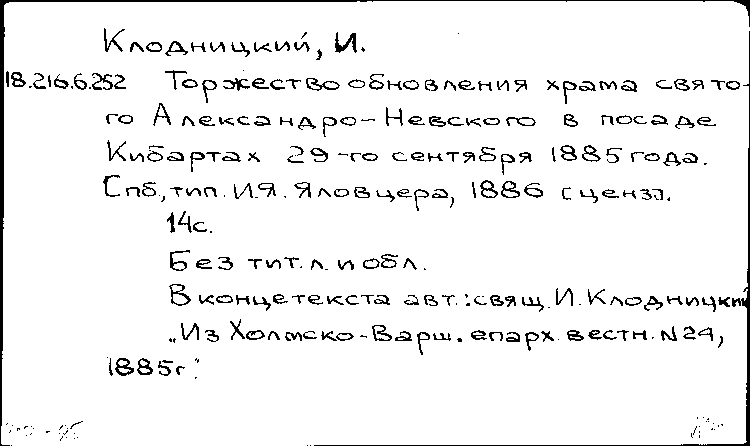 Клодницкий, И.
18.216.6.252 Торжество обновления храма свято-
го Александро-Невского в посаде
Кибартах 29-го сентября 1885 года.
Спб, тип. И.Я. Яловцера, 1886 [ценз].
14с.
Без тит. л. и обл.
В конце текста авт.: свящ. И. Клодницкий
„Из Холмско-Варш. епарх. вестн. N 24,
1885г."